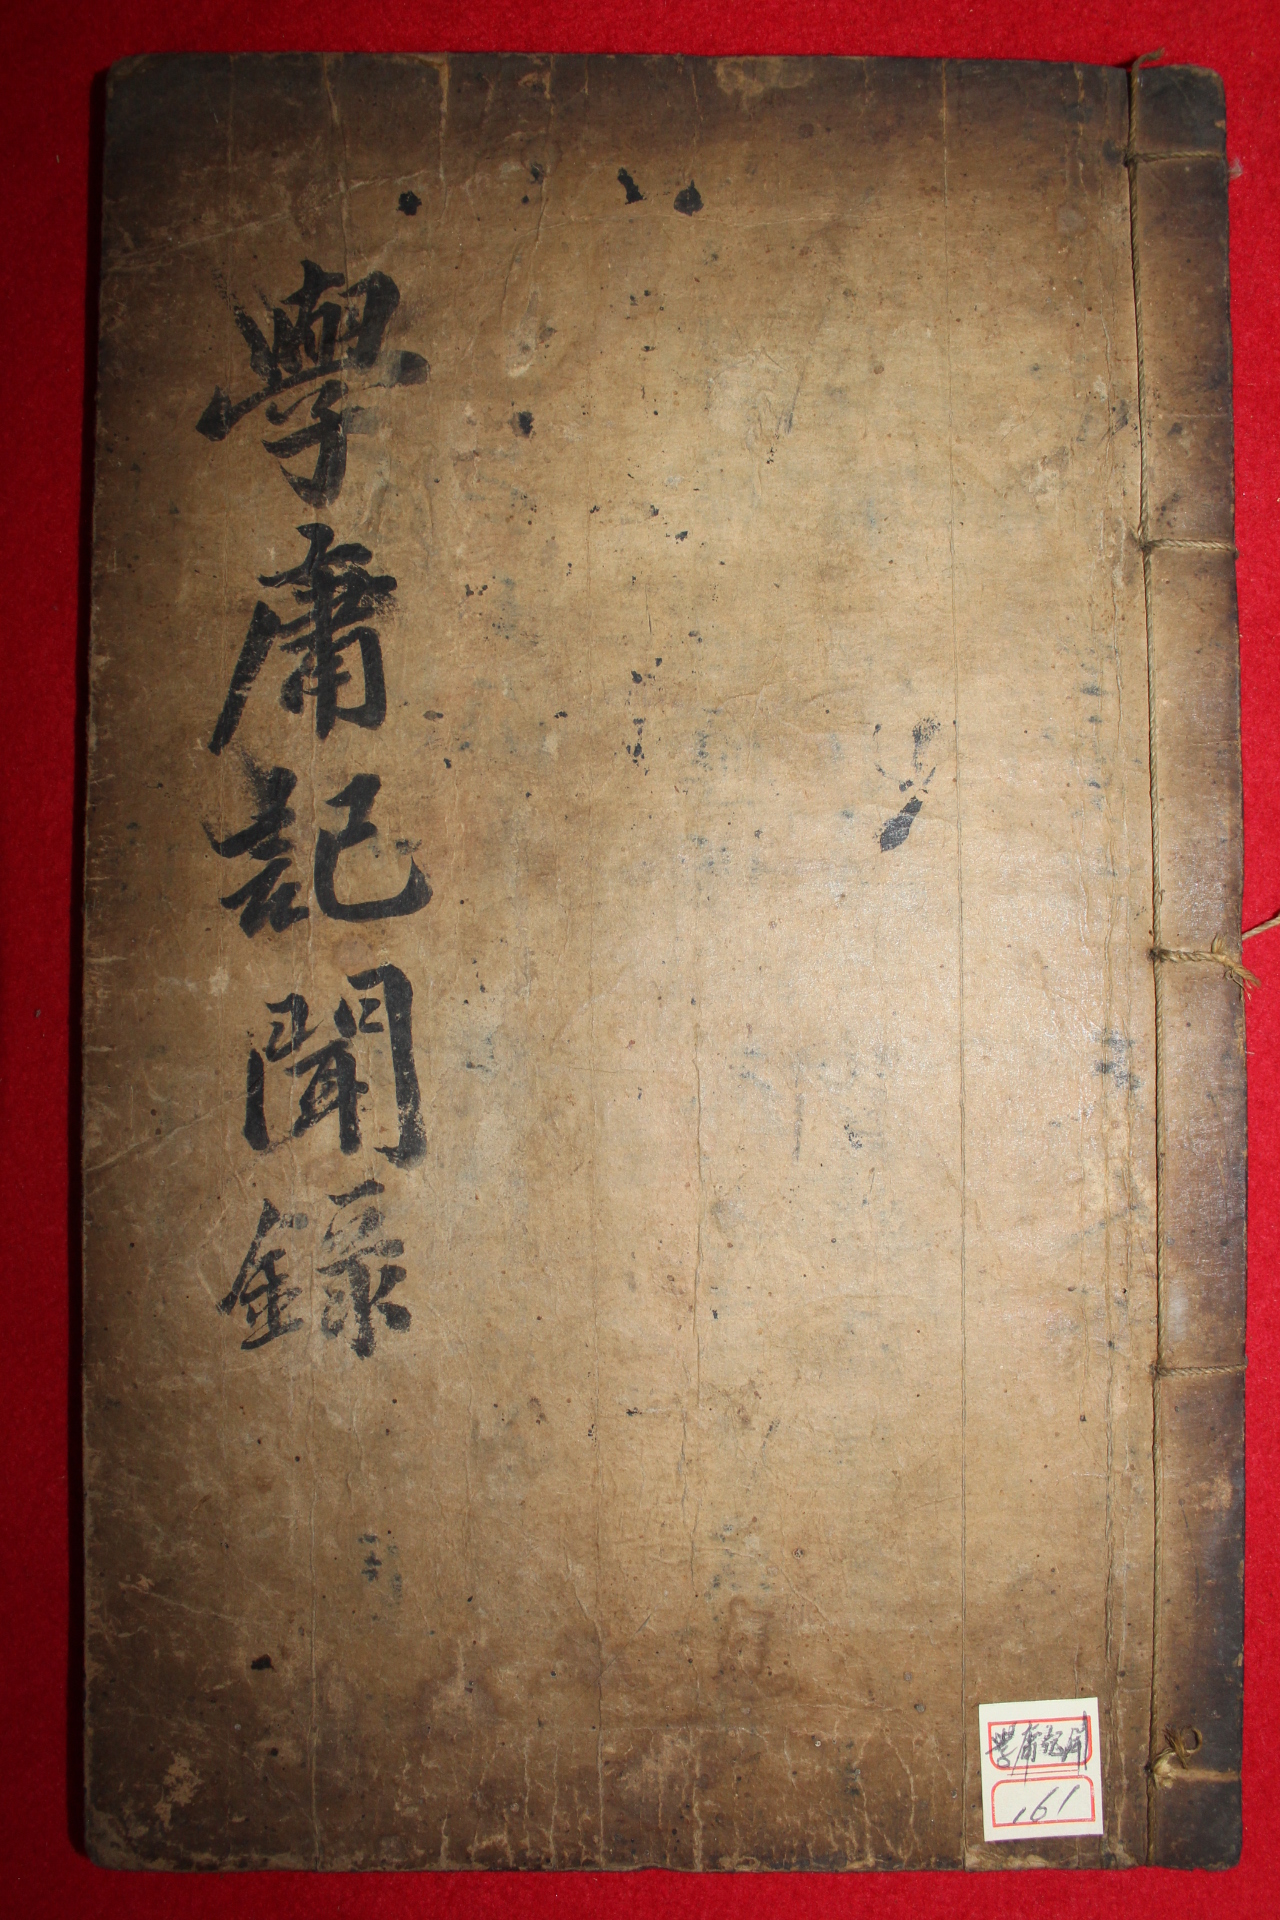 學庸記聞錄
學庸記聞
161